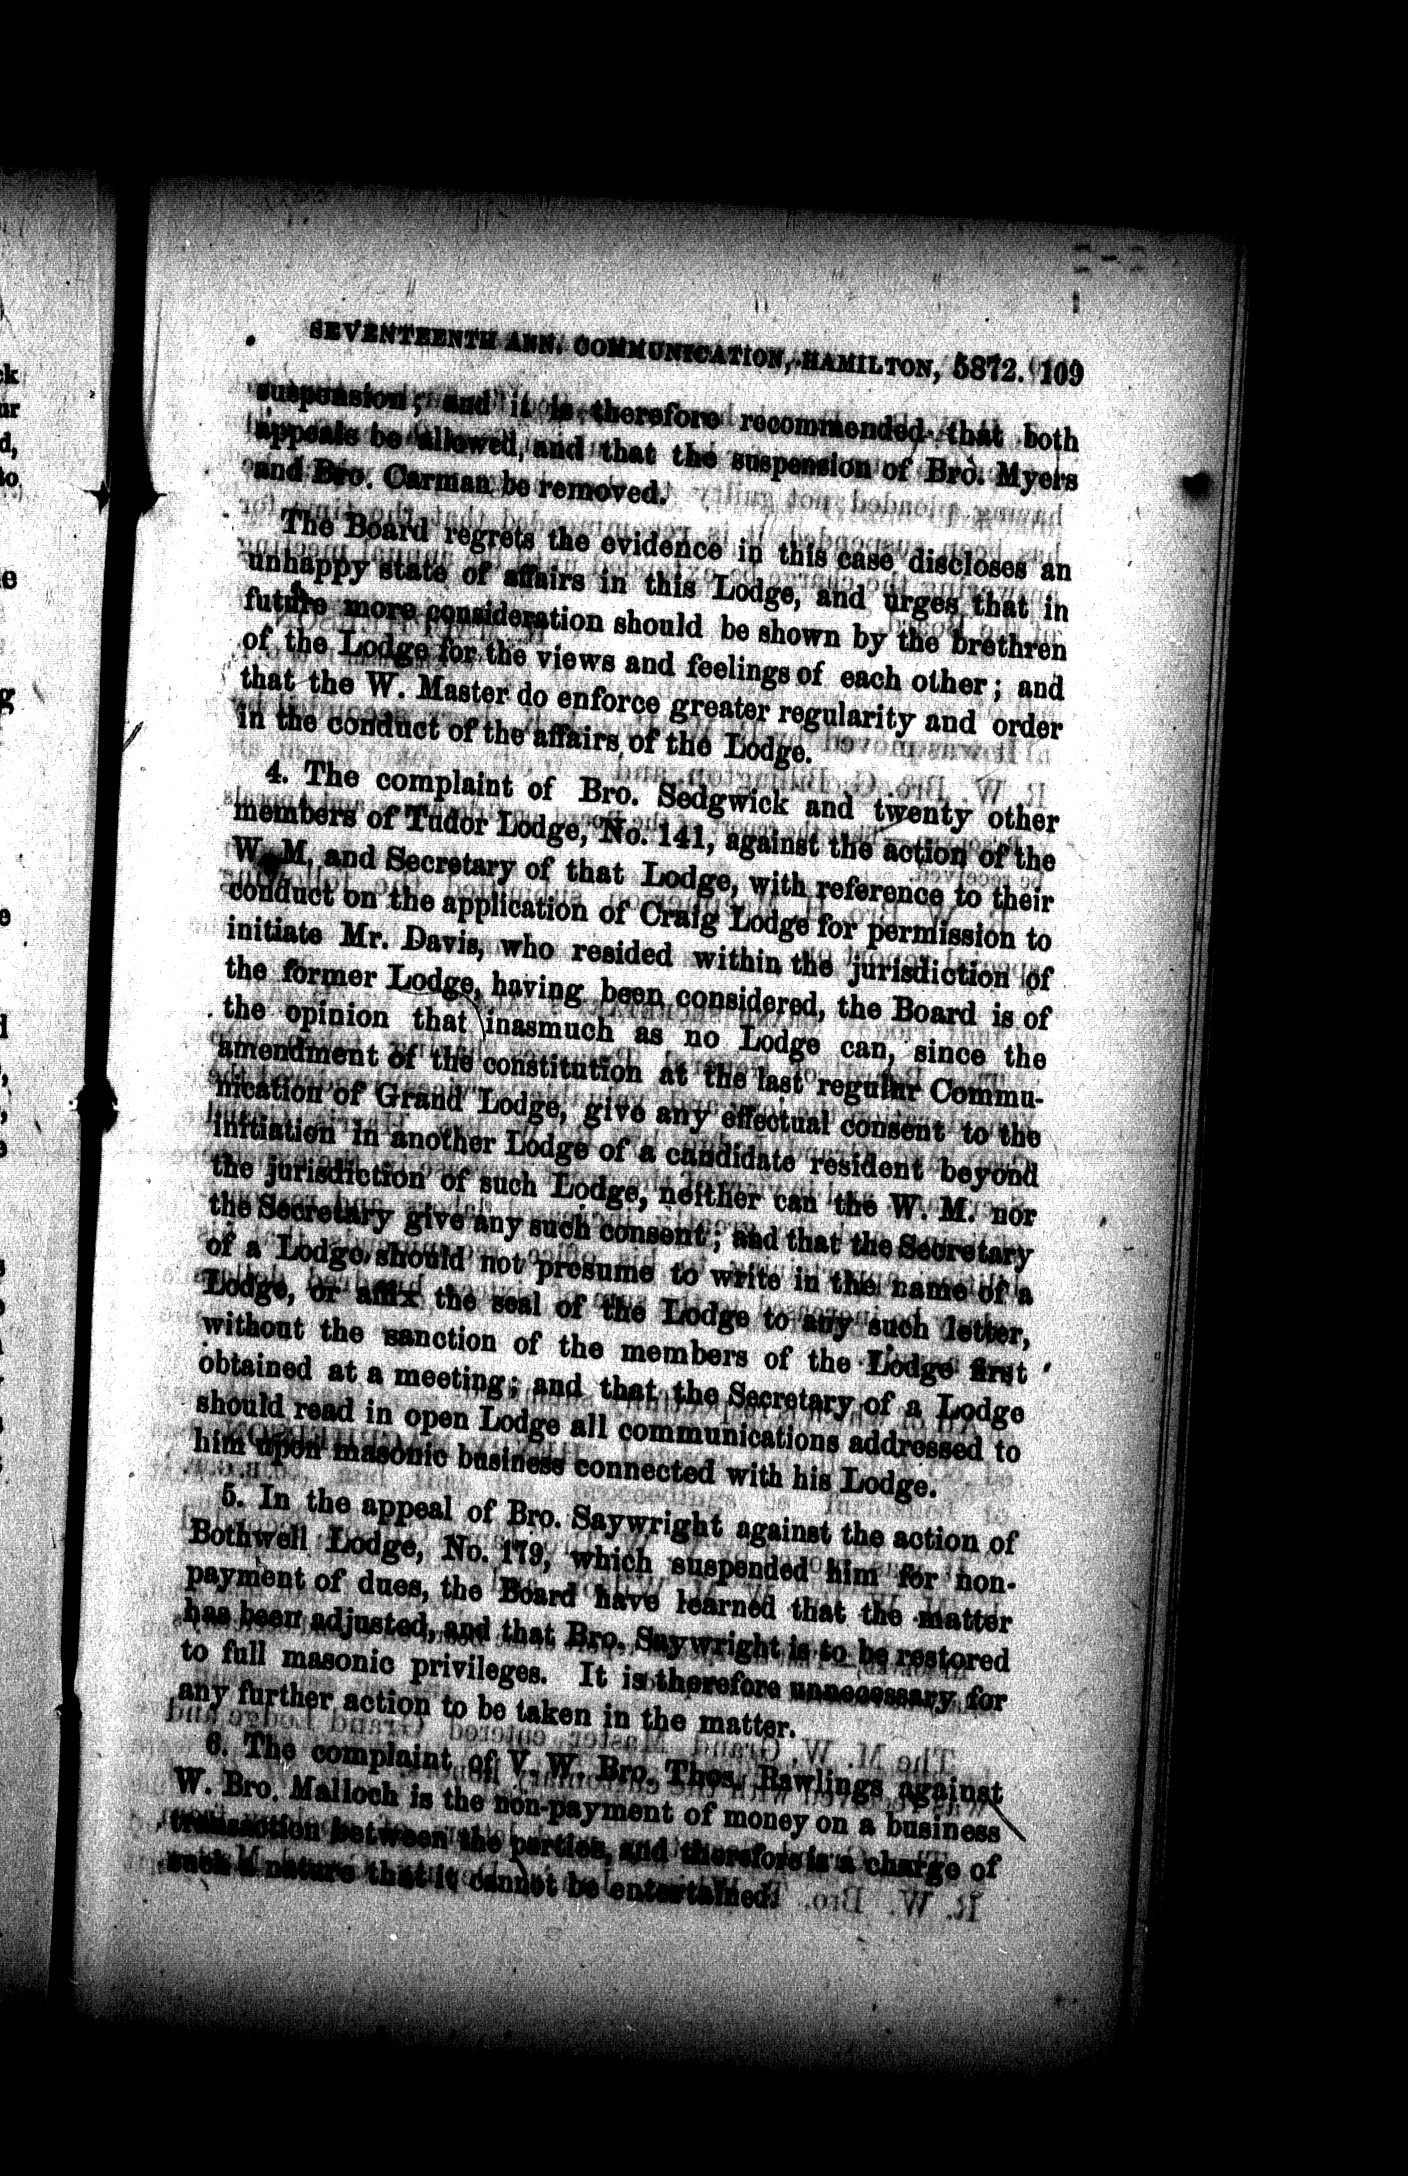 SEVENTEENTH ANN. COMMUNICATION, HAMILTON, 5872. 109
suspension; and it is therefore recommended that both
appeals be allowed, and that the suspension of Bro. Myers
and Bro. Carman be removed.
The Board regrets the evidence in this case discloses an
unhappy state of affairs in this Lodge, and urges that in
future more consideration should be shown by the brethren
of the Lodge for the views and feelings of each other; and
that the W. Master do enforce greater regularity and order
in the conduct of the affairs of the Lodge.
4. The complaint of Bro. Sedgwick and twenty other
members of Tudor Lodge, No. 141, against the action of the
W. M. and Secretary of that Lodge, with reference to their
conduct on the application of Craig Lodge for permission to
initiate Mr. Davis, who resided within the jurisdiction of
the former Lodge, having been considered, the Board is of
the opinion that inasmuch as no Lodge can, since the
amendment of the constitution at the last regular Commu-
nication of Grand Lodge, give any effectual consent to the
initiation in another Lodge of a candidate resident beyond
the jurisdiction of such Lodge, neither can the W. M. nor
the Secretary give any such consent; and that the Secretary
of a Lodge should not presume to write in the name of a
Lodge, or affix the seal of the Lodge to any such letter,
without the sanction of the members of the Lodge first
obtained at a meeting; and that the Secretary of a Lodge
should read in open Lodge all communications addressed to
him upon masonic business connected with his Lodge.
5. In the appeal of Bro. Saywright against the action of
Bothwell Lodge, No. 179, which suspended him for non-
payment of dues, the Board have learned that the matter
has been adjusted, and that Bro. Saywright is to be restored
to full masonic privileges. It is therefore unnecessary for
any further action to be taken in the matter.
6. The complaint of V. W. Bro. Thos. Rawlings against
W. Bro. Malloch is the non-payment of money on a business
transaction between the parties, and therefore is a charge of
such a nature that it cannot be entertained.